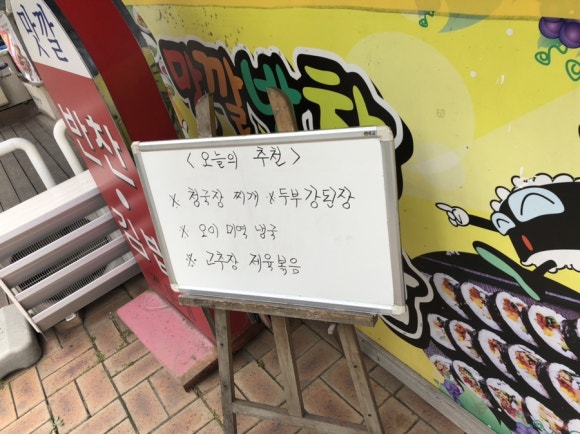 맛깔
반찬·김밥
맛깔반찬
<오늘의 추천>
※ 청국장 찌개 ※ 두부강된장
※ 오이 미역 냉국
※ 고추장 제육볶음